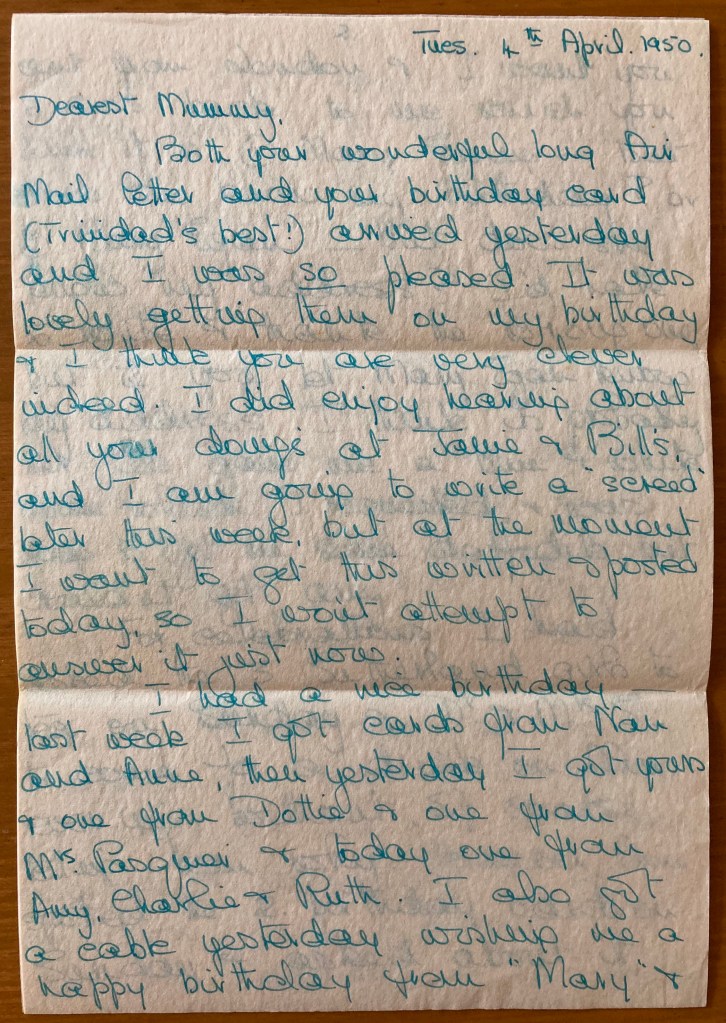 Tues. 4th April. 1950.
Dearest Mummy,
Both your wonderful long Air
Mail Letter and your birthday card
(Trinidad's best!) arrived yesterday
and I was so pleased. It was
lovely getting them on my birthday
& I think you are very clever
indeed. I did enjoy hearing about
all your doings at Jamie & Bill's,
and I am going to write a "screed"
later this week, but at the moment
I want to get this written & posted
today, so I wont attempt to
answer it just now.
I had a nice birthday —
last week I got cards from Nan
and Anne, then yesterday I got yours
& one from Dottie & one from
Mrs. Pasquier & today one from
Amy, Charlie & Ruth. I also got
a cable yesterday wishing me a
happy birthday from "Mary" &